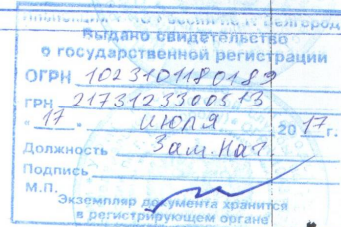 России по г. Белгород
Выдано свидетельство
о государственной регистрации
ОГРН 1023101180189
ГРН 2173123300513
"17" июля 2017г.
Должность Зам.нач.
Подпись
М.П.
Экземпляр документа хранится
в регистрирующем органе